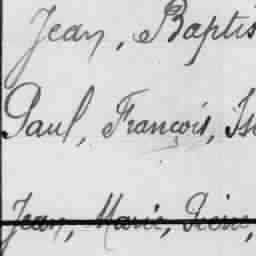 Jean, Baptis
Paul, François, Is
Jean, Marie, Pierre,